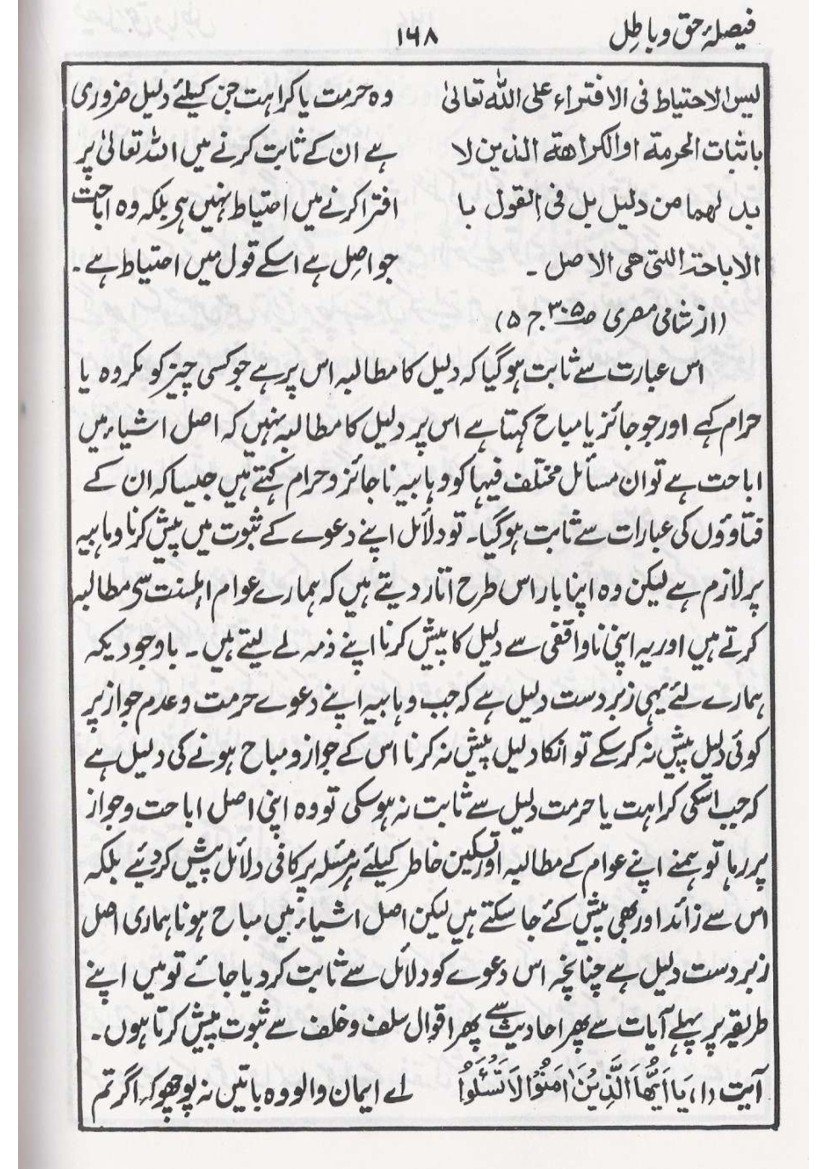 فیصلۂ حق و باطل
۱۶۸
لیس الاحتیاط فی الافتراء علی اللہ تعالیٰ
باثبات الحرمة او الکراهة الذین لا
بد لهما من دلیل بل فی القول با
الاباحة التی هی الاصل ۔
وہ حرمت یا کراہت جن کیلئے دلیل ضروری
ہے ان کے ثابت کرنے میں اللہ تعالیٰ پر
افترا کرنے میں احتیاط نہیں ہی بلکہ وہ اباحت
جو اصل ہے اسکے قول میں احتیاط ہے۔
(از شامی مصری صـ۳۰۵ ج ۵)
اس عبارت سے ثابت ہو گیا کہ دلیل کا مطالبہ اس پر ہے جو کسی چیز کو مکروہ یا
حرام کہے اور جو جائز یا مباح کہتا ہے اس پر دلیل کا مطالبہ نہیں کہ اصل اشیاء میں
اباحت ہے تو ان مسائل مختلف فیہا کو وہابیہ ناجائز و حرام کہتے ہیں جیسا کہ ان کے
فتاوؤں کی عبارات سے ثابت ہو گیا۔ تو دلائل اپنے دعوے کے ثبوت میں پیش کرنا وہابیہ
پر لازم ہے لیکن وہ اپنا بار اس طرح اتار دیتے ہیں کہ ہمارے عوام اہلسنت سے مطالبہ
کرتے ہیں اور یہ اپنی ناواقفی سے دلیل کا پیش کرنا اپنے ذمہ لے لیتے ہیں۔ باوجودیکہ
ہمارے لئے یہی زبردست دلیل ہے کہ جب وہابیہ اپنے دعوے حرمت و عدم جواز پر
کوئی دلیل پیش نہ کر سکے تو انکا دلیل پیش نہ کرنا اس کے جواز و مباح ہونے کی دلیل ہے
کہ جب اسکی کراہت یا حرمت دلیل سے ثابت نہ ہو سکی تو وہ اپنی اصل اباحت و جواز
پر رہا تو ہمنے اپنے عوام کے مطالبہ اور تسکین خاطر کیلئے ہر مسئلہ پر کافی دلائل پیش کر دیئے بلکہ
اس سے زائد اور بھی پیش کئے جا سکتے ہیں لیکن اصل اشیاء میں مباح ہونا ہماری اصل
زبردست دلیل ہے چنانچہ اس دعوے کو دلائل سے ثابت کر دیا جائے تو میں اپنے
طریقہ پر پہلے آیات سے پھر احادیث سے پھر اقوال سلف و خلف سے ثبوت پیش کرتا ہوں۔
آیت (۱) یَا اَیُّهَا الَّذِیْنَ اٰمَنُوْا لَا تَسْئَلُوْا
اے ایمان والو وہ باتیں نہ پوچھو کہ اگر تم